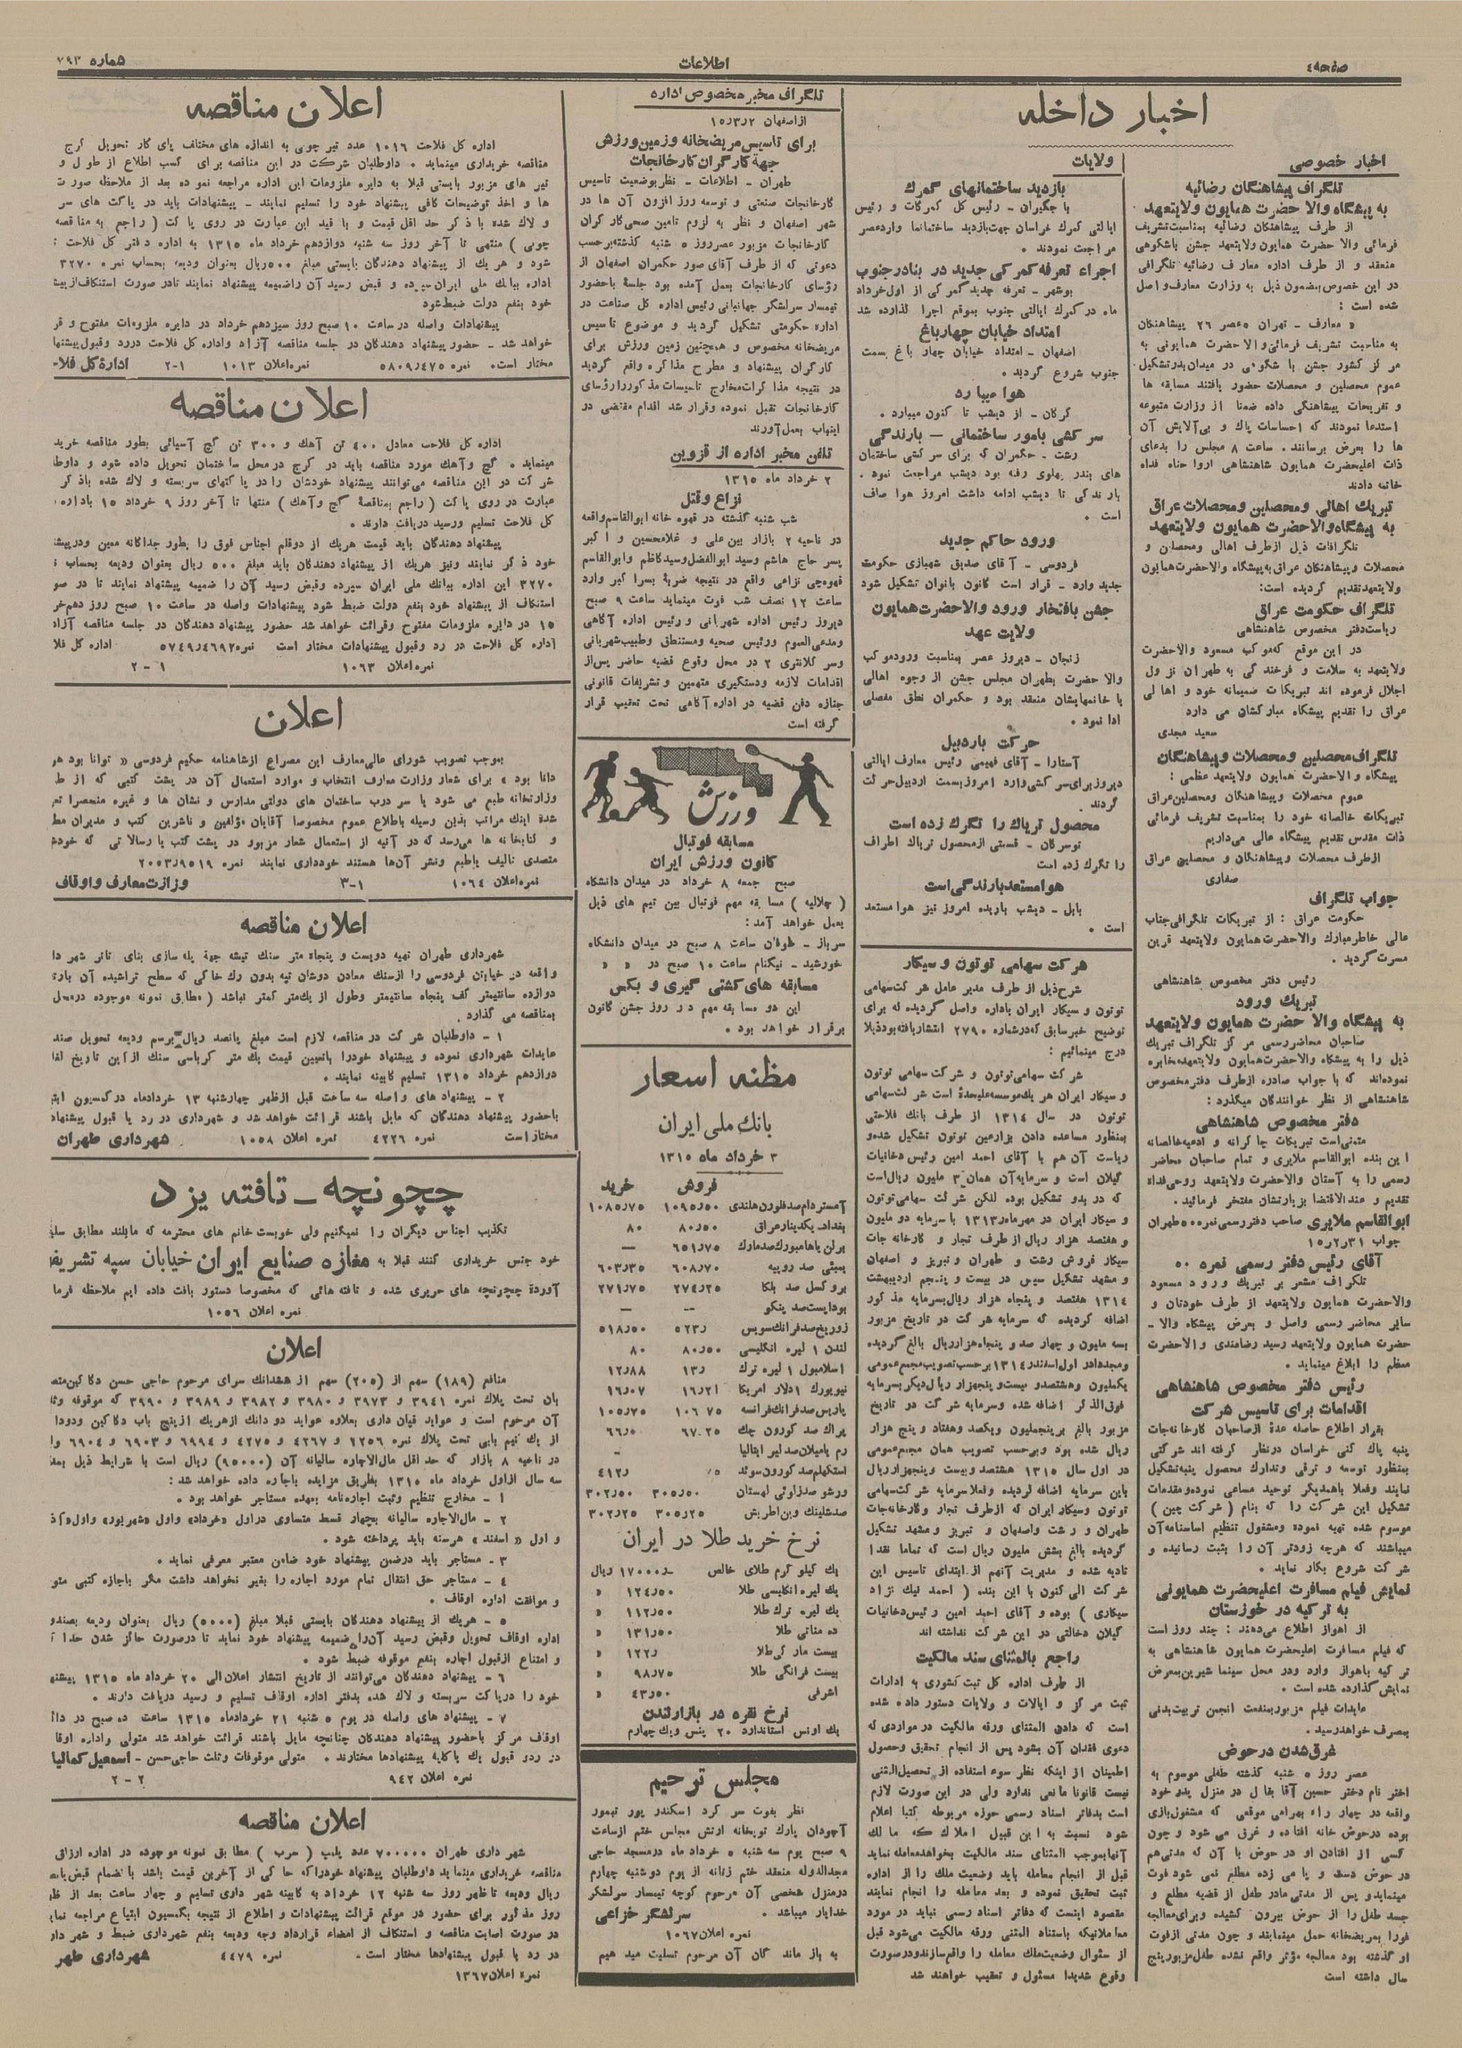 صفحه ٤
اطلاعات
شماره ٧٩٣
اخبار داخله
اخبار خصوصی
تلگراف پیشاهنگان رضائیه
به پیشگاه والا حضرت همایون ولایتعهد
از طرف پیشاهنگان رضائیه بمناسبت تشریف
فرمائی والا حضرت همایون ولایتعهد جشن باشکوهی
منعقد و از طرف اداره معارف رضائیه تلگرافی
در این خصوص بمضمون ذیل به وزارت معارف واصل
شده است :
به مناسبت تشریف فرمائی والا حضرت همایونی به
عموم محصلین و محصلات حضور یافتند مسابقه ها
و تفریحات پیشاهنگی داده ضمنا از وزارت متبوعه
استدعا نمودند که احساسات پاك و بی آلایش آن
ها را بعرض برسانند . ساعت ٨ مجلس را بدعای
ذات اعلیحضرت همایون شاهنشاهی ارواحناه فداه
خاتمه دادند
تبریك اهالی و محصلین و محصلات عراق
به پیشگاه والا حضرت همایون ولایتعهد
تلگرافات ذیل از طرف اهالی و محصلین و
محصلات و پیشاهنگان عراق به پیشگاه والاحضرت همایون
ولایتعهد تقدیم گردیده است:
تلگراف حکومت عراق
ریاست دفتر مخصوص شاهنشاهی
در این موقع که موکب مسعود والاحضرت
ولایتعهد به سلامت و فرخندگی به طهران نزول
اجلال فرموده اند تبریکات صمیمانه خود و اهالی
عراق را تقدیم پیشگاه مبارکشان می دارد
سعید مجدی
تلگراف محصلین و محصلات و پیشاهنگان
پیشگاه والاحضرت همایون ولایتعهد عظمی :
عموم محصلات و پیشاهنگان و محصلین عراق
تبریکات خالصانه خود را بمناسبت تشریف فرمائی
ذات مقدس تقدیم پیشگاه عالی می داریم
از طرف محصلات و پیشاهنگان و محصلین عراق
صفاری
جواب تلگراف
حکومت عراق : از تبریکات تلگرافی جناب
عالی خاطر مبارك والاحضرت همایون ولایتعهد قرین
مسرت گردید .
رئیس دفتر مخصوص شاهنشاهی
تبریك ورود
به پیشگاه والا حضرت همایون ولایتعهد
صاحبان محاضر رسمی مرکز تلگراف تبریك
ذیل را به پیشگاه والاحضرت همایون ولایتعهد مخابره
نموده اند که با جواب صادره از طرف دفتر مخصوص
شاهنشاهی از نظر خوانندگان میگذرد :
دفتر مخصوص شاهنشاهی
متمنی است تبریکات چاکرانه و ادعیه خالصانه
این بنده ابوالقاسم ملایری و تمام صاحبان محاضر
رسمی را به آستان والاحضرت ولایتعهد روحی فداه
تقدیم و عندالاقتضا بزیارتشان مفتخر فرمائید .
جواب ١٥٫٢٫٣١
آقای رئیس دفتر رسمی نمره ٥٠
تلگراف مشعر بر تبریك ورود مسعود
والاحضرت همایون ولایتعهد از طرف خودتان و
سایر محاضر رسمی واصل و بعرض پیشگاه والا -
حضرت همایون ولایتعهد رسید رضامندی والاحضرت
معظم را ابلاغ مینماید .
رئیس دفتر مخصوص شاهنشاهی
اقدامات برای تاسیس شرکت
بقرار اطلاع حاصله عدۀ از صاحبان کارخانجات
پنبه پاك کنی خراسان در نظر گرفته اند شرکتی
بمنظور توسعه و ترقی و تدارك محصول پنبه تشکیل
نمایند و فعلا با همدیگر توحید مساعی نموده و مقدمات
تشکیل این شرکت را که بنام ( شرکت چین )
موسوم شده تهیه نموده و مشغول تنظیم اساسنامه آن
میباشند که هرچه زودتر آن را بثبت رسانیده و
شرکت شروع بکار نماید .
نمایش فیلم مسافرت اعلیحضرت همایونی
به ترکیه در خوزستان
از اهواز اطلاع می دهند : چند روز است
که فیلم مسافرت اعلیحضرت همایون شاهنشاهی به
ترکیه باهواز وارد و در محل سینما شیرین بمعرض
نمایش گذارده شده است .
عایدات فیلم مزبور بمنفعت انجمن تربیت بدنی
بمصرف خواهد رسید .
غرق شدن در حوض
عصر روز ٥ شنبه گذشته طفلی موسوم به
اختر نام دختر حسین آقا بقال در منزل پدر خود
واقعه در چهار راه بهرامی موقعی که مشغول بازی
بوده در حوض خانه افتاده و غرق می شود و چون
کسی از افتادن او در حوض با آن که مدتی هم
در حوض دست و پا می زده مطلع نمی شود فوت
مینماید و پس از مدتی مادر طفل از قضیه مطلع و
جسد طفل را از حوض بیرون کشیده و برای معالجه
فورا بمریضخانه حمل مینمایند و چون مدتی از فوت
او گذشته بود معالجه مؤثر واقع نشده طفل مزبور پنج
سال داشته است
ولایات
بازدید ساختمانهای گمرك
باجگیران - رئیس کل گمرکات و رئیس
ایالتی گمرك خراسان جهت بازدید ساختمانها وارد عصر
مراجعت نمودند .
اجراء تعرفه گمرکی جدید در بنادر جنوب
بوشهر - تعرفه جدید گمرکی از اول خرداد
ماه در گمرك ایالتی جنوب بموقع اجرا گذارده شد
امتداد خیابان چهارباغ
اصفهان - امتداد خیابان چهار باغ بسمت
جنوب شروع گردید .
هوا میبارد
گرگان - از دیشب تا کنون میبارد .
سرکشی بامور ساختمانی - بارندگی
رشت - حکمران که برای سرکشی ساختمان
های بندر پهلوی رفته بود دیشب مراجعت نمود .
بارندگی تا دیشب ادامه داشت امروز هوا صاف
است .
ورود حاکم جدید
فردوسی - آقای صدیق شهبازی حکومت
جدید وارد - قرار است کانون بانوان تشکیل شود
جشن بافتخار ورود والاحضرت همایون
ولایت عهد
زنجان - دیروز عصر بمناسبت ورود موکب
والا حضرت بطهران مجلس جشن از وجوه اهالی
با خانمهایشان منعقد بود و حکمران نطق مفصلی
ادا نمود .
حرکت باردبیل
آستارا - آقای فهیمی رئیس معارف ایالتی
دیروز برای سرکشی وارد امروز بسمت اردبیل حرکت
کردند .
محصول تریاك را تگرك زده است
تویسرکان - قسمتی از محصول تریاك اطراف
را تگرك زده است
هوا مستعد بارندگی است
بابل - دیشب باریده امروز نیز هوا مستعد
است .
شرکت سهامی توتون و سیگار
شرح ذیل از طرف مدیر عامل شرکت سهامی
توتون و سیگار ایران باداره واصل گردیده که برای
توضیح خبر سابق که در شماره ٢٧٩٠ انتشار یافته بود ذیلا
درج مینمائیم :
شرکت سهامی توتون و شرکت سهامی توتون
و سیگار ایران هر یك موسسه علیحدۀ است شرکت سهامی
توتون در سال ١٣١٤ از طرف بانك فلاحتی
بمنظور مساعده دادن بزارعین توتون تشکیل شده و
ریاست آن هم با آقای احمد امین رئیس دخانیات
گیلان است و سرمایه آن همان ٣ ملیون ریال است
که در بدو تشکیل بوده لکن شرکت سهامی توتون
و سیگار ایران در مهرماه ١٣١٣ با سرمایه دو ملیون
و هفتصد هزار ریال از طرف تجار و کارخانه جات
سیگار فروش رشت و طهران و تبریز و اصفهان
و مشهد تشکیل سپس در بیست و پنجم اردیبهشت
١٣١٤ هفتصد و پنجاه هزار ریال بسرمایه مذکور
اضافه گردیده که سرمایه شرکت در تاریخ مزبور
بسه ملیون و چهار صد و پنجاه هزار ریال بالغ گردیده
و مجددا در اول اسفند ١٣١٤ برحسب تصویب مجمع عمومی
یکملیون و هشتصد و بیست و پنجهزار ریال دیگر بسرمایه
فوق الذکر اضافه شده و سرمایه شرکت در تاریخ
مزبور بالغ بر پنجملیون و یکصد و هفتاد و پنج هزار
ریال شده بود و برحسب تصویب همان مجمع عمومی
در اول سال ١٣١٥ هشتصد و بیست و پنجهزار ریال
باین سرمایه اضافه گردیده و فعلا سرمایه شرکت سهامی
توتون و سیگار ایران که از طرف تجار و کارخانه جات
طهران و رشت و اصفهان و تبریز و مشهد تشکیل
گردیده بالغ بشش ملیون ریال است که تماما نقدا
تادیه شده و مدیریت آنهم از ابتدای تاسیس این
شرکت الی کنون با این بنده ( احمد نیك نژاد
سیگاری ) بوده و آقای احمد امین رئیس دخانیات
گیلان دخالتی در این شرکت نداشته اند
راجع بالمثنای سند مالکیت
از طرف اداره کل ثبت کشوری به ادارات
ثبت مرکز و ایالات و ولایات دستور داده شده
است که دادن المثنای ورقه مالکیت در مواردی که
دعوی فقدان آن بشود پس از انجام تحقیق و حصول
اطمینان از اینکه نظر سوء استفاده از تحصیل المثنی
نیست قانونا مانعی ندارد ولی در این صورت لازم
است بدفاتر اسناد رسمی حوزه مربوطه کتبا اعلام
شود نسبت به این قبیل املاك که مالك
آنها بموجب المثنای سند مالکیت بخواهد معامله نماید
قبل از انجام معامله باید وضعیت ملك را از اداره
ثبت تحقیق نموده و بعد معامله را انجام نمایند
مقصود اینست که دفاتر اسناد رسمی نباید در مورد
معاملاتیکه باستناد المثنی ورقه مالکیت می شود قبل
از سئوال وضعیت ملك معامله را واقع سازند و در صورت
وقوع شدیدا مسئول و تعقیب خواهند شد
تلگراف مخبر مخصوص اداره
از اصفهان ١٥٫٣٫٢
برای تاسیس مریضخانه و زمین ورزش
جهة کارگران کارخانجات
طهران - اطلاعات - نظر بوضعیت تاسیس
کارخانجات صنعتی و توسعه روز افزون آن ها در
شهر اصفهان و نظر به لزوم تامین صحی کارگران
کارخانجات مزبور عصر روز ٥ شنبه گذشته برحسب
دعوتی که از طرف آقای صور حکمران اصفهان از
رؤسای کارخانجات بعمل آمده بود جلسۀ باحضور
تیمسار سرلشگر جهانبانی رئیس اداره کل صناعت در
اداره حکومتی تشکیل گردید و موضوع تاسیس
مریضخانه مخصوص و همچنین زمین ورزش برای
کارگران پیشنهاد و مطرح مذاکره واقع گردید
در نتیجه مذاکرات مخارج تاسیسات مذکور را رؤسای
کارخانجات تقبل نموده و قرار شد اقدام مقتضی در
اینباب بعمل آورند
تلفن مخبر اداره از قزوین
٢ خرداد ماه ١٣١٥
نزاع و قتل
شب شنبه گذشته در قهوه خانه ابوالقاسم واقعه
در ناحیه ٢ بازار بین علی و غلامحسین و اکبر
پسر حاج هاشم وسید ابوالفضل وسید کاظم وابوالقاسم
قهوه چی نزاعی واقع در نتیجه ضربۀ بسر اکبر وارد
ساعت ١٢ نصف شب فوت مینماید ساعت ٩ صبح
دیروز رئیس اداره شهربانی و رئیس اداره آگاهی
ومدعی العموم و رئیس صحیه ومستنطق وطبیب شهربانی
وسر کلانتری ٢ در محل وقوع قضیه حاضر پس از
اقدامات لازمه ودستگیری متهمین و تشریفات قانونی
جنازه دفن قضیه در اداره آگاهی تحت تعقیب قرار
گرفته است
ورزش
مسابقه فوتبال
کانون ورزش ایران
صبح جمعه ٨ خرداد در میدان دانشگاه
( جلالیه ) مسابقه مهم فوتبال بین تیم های ذیل
بعمل خواهد آمد :
سرباز - طوفان ساعت ٨ صبح در میدان دانشگاه
خورشید - نیکنام ساعت ١٠ صبح در » »
مسابقه های کشتی گیری و بکس
این دو مسابقه مهم در روز جشن کانون
برقرار خواهد بود .
مظنه اسعار
بانك ملی ایران
٣ خرداد ماه ١٣١٥
فروش خرید
آمستردام صد فلورن هلندی ١٠٩٥٫٥٠ ١٠٨٥٫٧٥
بغداد یکدینار عراق ٨٠٫٥٠ ٨٠
برلن یا هامبورك صد مارك ٦٥١٫٧٥ —
بمبئی صد روپیه ٦٠٨٫٧٠ ٦٠٣٫٣٥
بروکسل صد بلگا ٢٧٤٫٢٥ ٢٧١٫٧٥
بوداپست صد پنگو -- —
زوریخ صد فرانك سویس ٫٥٢٣ ٥١٨٫٥٠
لندن ١ لیره انگلیسی ٨٠٫٥٠ ٨٠
اسلامبول ١ لیره ترك ٫١٣ ١٢٫٨٨
نیویورك ١ دلار امریکا ١٦٫٢١ ١٦٫٠٧
پاریس صد فرانك فرانسه ١٠٦٫٧٥ ١٠٥٫٧٥
پراك صد کورون چك ٦٧٫٢٥ ٦٦٫٥٠
رم یا میلان صد لیر ایتالیا -
استکهلم صد کورون سوئد ٤١٢
ورشو صد زلوتی لهستان ٣٠٥٫٥٠ ٣٠٢٫٥٠
صد شلینك وین اطریش ٣٠٥٫٢٥ ٣٠٢٫٢٥
نرخ خرید طلا در ایران
یك کیلو گرم طلای خالص ١٧٠٠٠٫ ریال
یك لیره انگلیسی طلا ١٢٤٫٥٠ »
یك لیره ترك طلا ١١٢٫٥٠ »
ده مناتی طلا ١٣١٫٥٠ »
بیست مارکی طلا ١٢٢٫ »
بیست فرانگی طلا ٩٨٫٧٥ »
اشرفی ٤٣٫٥٠ »
نرخ نقره در بازار لندن
یك اونس استاندارد ٢٠ پنس و یك چهارم
مجلس ترحیم
نظر بفوت سرگرد اسکندر پور تیمور
آجودان پارك توپخانه ارتش مجلس ختم از ساعت
٩ صبح یوم سه شنبه ٥ خرداد ماه در مسجد حاجی
مجدالدوله منعقد ختم زنانه از یوم دوشنبه چهارم
در منزل شخصی آن مرحوم کوچه تیمسار سرلشگر
خدایار میباشد . سرلشگر خزاعی
نمره اعلان ١٠٦٧
به بازماندگان آن مرحوم تسلیت میدهیم
اعلان مناقصه
اداره کل فلاحت ١٠١٦ عدد تیر چوبی به اندازه های مختلف پای کار تحویل کرج
مناقصه خریداری مینماید . داوطلبان شرکت در این مناقصه برای کسب اطلاع از طول و
تیر های مزبور بایستی قبلا به دایره ملزومات این اداره مراجعه نموده بعد از ملاحظه صورت
ها و اخذ توضیحات کافی پیشنهاد خود را تسلیم نمایند - پیشنهادات باید در پاکت های سر
و لاك شده با ذکر حد اقل قیمت و با قید این عبارت در روی پاکت ( راجع به مناقصه
چوبی ) منتهی تا آخر روز سه شنبه دوازدهم خرداد ماه ١٣١٥ به اداره دفتر کل فلاحت
شود و هر یك از پیشنهاد دهندگان بایستی مبلغ ٥٠٠ ریال بعنوان ودیعه بحساب نمره ٣٢٧٠
اداره ببانك ملی ایران سپرده و قبض رسید آن را ضمیمه پیشنهاد نمایند تا در صورت استنکاف از پیش
خود بنفع دولت ضبط شود
پیشنهادات واصله در ساعت ١٠ صبح روز سیزدهم خرداد در دایره ملزومات مفتوح و قر
خواهد شد - حضور پیشنهاد دهندگان در جلسه مناقصه آزاد واداره کل فلاحت در رد وقبول پیشنها
مختار است . نمره ٥٨٠٩٫٤٧٥ نمره اعلان ١٠١٣ ١-٢ اداره کل فلاح
اعلان مناقصه
اداره کل فلاحت معادل ٤٠٠ تن آهك و ٣٠٠ تن گچ آسیائی بطور مناقصه خرید
مینماید . گچ وآهك مورد مناقصه باید در کرج در محل ساختمان تحویل داده شود و داوطل
شرکت در این مناقصه می توانند پیشنهاد خودشان را در پاکتهای سربسته و لاك شده باذکر
عبارت در روی پاکت ( راجع بمناقصۀ گچ وآهك ) منتها تا آخر روز ٩ خرداد ١٥ باداره
کل فلاحت تسلیم ورسید دریافت دارند .
پیشنهاد دهندگان باید قیمت هریك از دو قلم اجناس فوق را بطور جداگانه معین و در پیش
خود ذکر نمایند ونیز هریك از پیشنهاد دهندگان باید مبلغ ٥٠٠ ریال بعنوان ودیعه بحساب
٣٢٧٠ این اداره ببانك ملی ایران سپرده وقبض رسید آن را ضمیمه پیشنهاد نمایند تا در صو
استنکاف از پیشنهاد خود بنفع دولت ضبط شود پیشنهادات واصله در ساعت ١٠ صبح روز دهم خر
١٥ در دایره ملزومات مفتوح وقرائت خواهد شد حضور پیشنهاد دهندگان در جلسه مناقصه آزاد
اداره کل فلاحت در رد وقبول پیشنهادات مختار است نمره ٥٧٤٩٫٤٦٩٢ اداره کل فلا
نمره اعلان ١٠٦٣ ١-٢
اعلان
بموجب تصویب شورای عالی معارف این مصراع از شاهنامه حکیم فردوسی « توانا بود هر
دانا بود » برای شعار وزارت معارف انتخاب و موارد استعمال آن در پشت کتبی که از ط
وزارتخانه طبع می شود یا سر درب ساختمان های دولتی مدارس و نشان ها و غیره منحصرا تع
شده اینك مراتب بدین وسیله باطلاع عموم مخصوصا آقایان مؤلفین و ناشرین کتب و مدیران مط
و کتابخانه ها می رسد که در آتیه از استعمال شعار مزبور در پشت کتب یا رسالاتی که خود
متصدی تالیف یا طبع ونشر آن ها هستند خودداری نمایند نمره ٢٠٠٥٣٫٩٥١٩
نمره اعلان ١٠٦٤ ١-٣ وزارت معارف واوقاف
اعلان مناقصه
شهرداری طهران تهیه دویست و پنجاه متر سنك تیشه جهة پله سازی بنای تاتر شهر دا
واقعه در خیابان فردوسی را از سنك معادن دوشان تپه بدون رك خاکی که سطح تراشیده آن بار
دوازده سانتیمتر کف پنجاه سانتیمتر وطول از یك متر کمتر نباشد ( مطابق نمونه موجوده در محل
بمناقصه می گذارد .
١ - داوطلبان شرکت در مناقصه لازم است مبلغ پانصد ریال برسم ودیعه تحویل صند
عایدات شهرداری نموده و پیشنهاد خود را باتعیین قیمت یك متر کرباسی سنك از این تاریخ الی
دوازدهم خرداد ١٣١٥ تسلیم کابینه نمایند .
٢ - پیشنهاد های واصله سه ساعت قبل از ظهر چهارشنبه ١٣ خرداد ماه در کمسیون ابتی
باحضور پیشنهاد دهندگان که مایل باشند قرائت خواهد شد و شهرداری در رد یا قبول پیشنهاد
مختار است نمره ٤٢٢٦ نمره اعلان ١٠٥٨ شهرداری طهران
چچونچه - تافته یزد
تکذیب اجناس دیگران را نمیکنیم ولی خوبست خانم های محترمه که مایلند مطابق سلی
خود جنس خریداری کنند قبلا به مغازه صنایع ایران خیابان سپه تشریف
آوردۀ چچونچه های حریری شده و تافته هائی که مخصوصا دستور بافت داده ایم ملاحظه فرما
نمره اعلان ١٠٥٦
اعلان
منافع (١٨٩) سهم از (٢٠٥) سهم از ششدانك سرای مرحوم حاجی حسن دکاکین متص
بان تحت پلاك نمره ٣٩٤١ و ٣٩٧٣ و ٣٩٨٠ و ٣٩٨٢ و ٣٩٨٩ و ٣٩٩٠ که موقوفه وثلث
آن مرحوم است و عواید قپان داری بعلاوه عواید دو دانك از هریك از پنج باب دکاکین ودودا
از یك نیم بابی تحت پلاك نمره ١٢٥٦ و ٤٢٦٧ و ٤٢٧٥ و ٦٩٩٤ و ٦٩٠٣ و ٦٩٠٤ وا
در ناحیه ٨ بازار که حد اقل مال الاجاره سالیانه آن (٩٥٠٠٠) ریال است با شرایط ذیل بمد
سه سال از اول خرداد ماه ١٣١٥ بطریق مزایده باجاره داده خواهد شد :
١ - مخارج تنظیم وثبت اجاره نامه بعهده مستاجر خواهد بود .
٢ - مال الاجاره سالیانه بچهار قسط متساوی در اول «خرداد» و اول «شهریور» و اول «آذر
و اول « اسفند » هر سنه باید پرداخته شود .
٣ - مستاجر باید در ضمن پیشنهاد خود ضامن معتبر معرفی نماید .
٤ - مستاجر حق انتقال تمام مورد اجاره را بغیر نخواهد داشت مگر با اجازه کتبی متو
و موافقت اداره اوقاف .
٥ - هریك از پیشنهاد دهندگان بایستی قبلا مبلغ (٥٠٠٠) ریال بعنوان ودیعه بصندو
اداره اوقاف تحویل وقبض رسید آن را ضمیمه پیشنهاد خود نماید تا در صورت حائز شدن حد ا
و امتناع از قبول اجاره بنفع موقوفه ضبط شود .
٦ - پیشنهاد دهندگان می توانند از تاریخ انتشار اعلان الی ٢٠ خرداد ماه ١٣١٥ پیشنه
خود را در پاکت سربسته و لاك شده بدفتر اداره اوقاف تسلیم و رسید دریافت دارند .
٧ - پیشنهاد های واصله در یوم ٥ شنبه ٢١ خرداد ماه ١٣١٥ ساعت ده صبح در دا
اوقاف مرکز باحضور پیشنهاد دهندگان چنانچه مایل باشند قرائت خواهد شد متولی واداره اوقا
در رد و قبول یك یا کلیه پیشنهادها مختارند . متولی موقوفات وثلث حاجی حسن - اسمعیل کمالیا
نمره اعلان ٩٤٢ ٢-٢
اعلان مناقصه
شهرداری طهران ٧٠٠٠٠٠ عدد پلمپ ( سرب ) مطابق نمونه موجوده در اداره ارزاق
مناقصه خریداری مینماید داوطلبان پیشنهاد خود را که حاکی از آخرین قیمت باشد با نضمام قبض
ریال ودیعه تا ظهر روز سه شنبه ١٢ خرداد به کابینه شهرداری تسلیم و چهار ساعت بعد از ظ
روز مذکور برای حضور در موقع قرائت پیشنهادات و اطلاع از نتیجه بکمسیون ابتیاع مراجعه نما
در صورت اصابت مناقصه و استنکاف از امضاء قرارداد وجه ودیعه بنفع شهرداری ضبط و شهردار
در رد یا قبول پیشنهادها مختار است . نمره ٤٤٧٩ شهرداری طهر
نمره اعلان ١٣٦٧